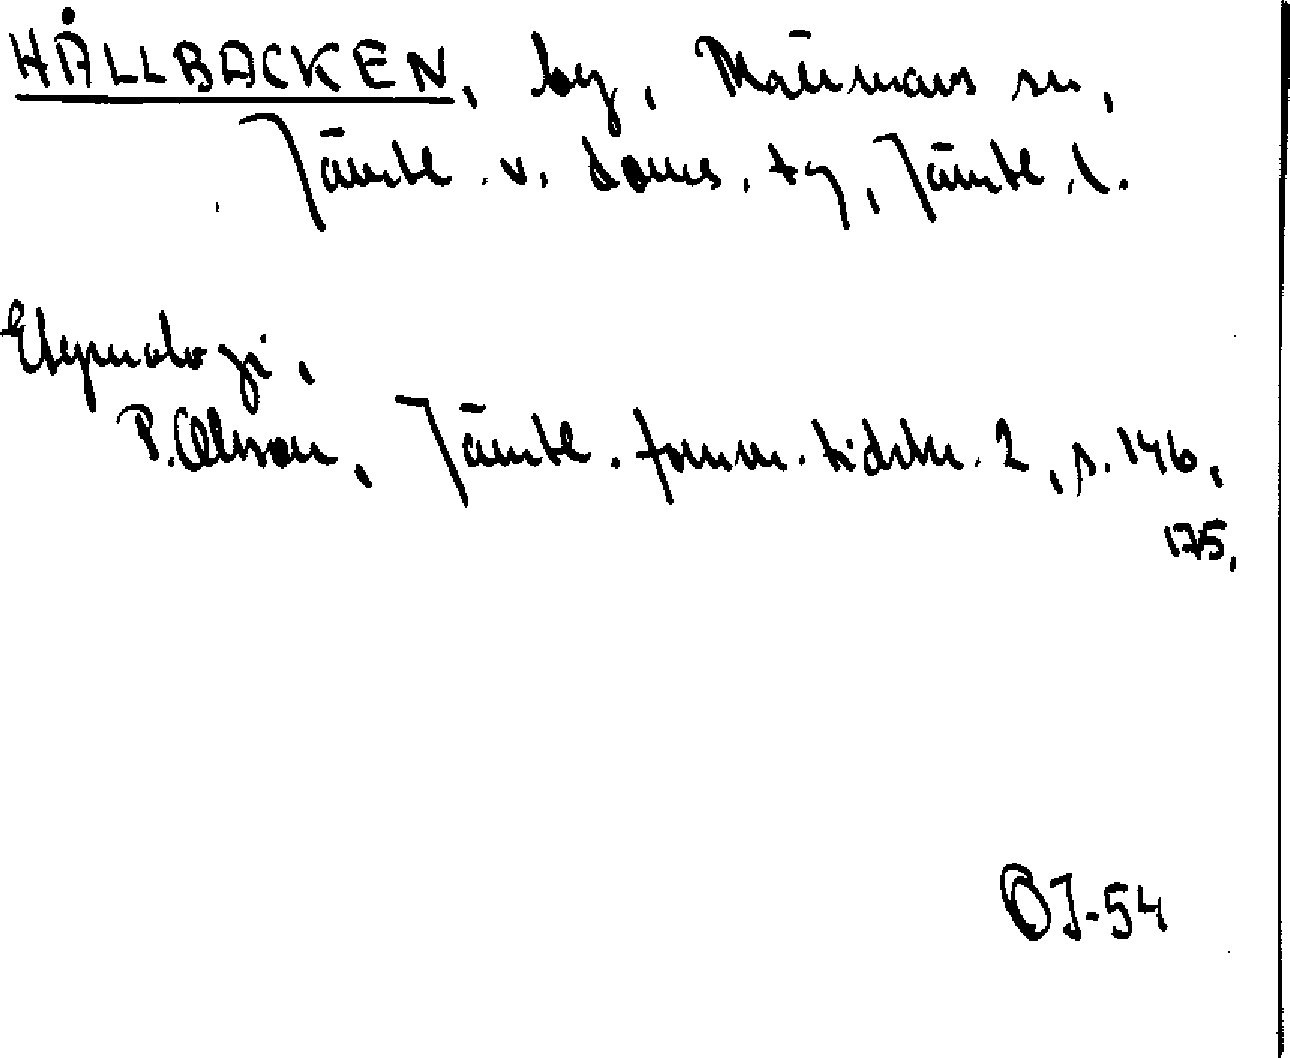 HÅLLBACKEN, by, Mörsills sn,
Jämtl. v. doms. tg, Jämtl. l.
Etymologi,
P. Olsson, Jämtl. fornm. tidskr. 2, s. 146,
175,
OJ-54